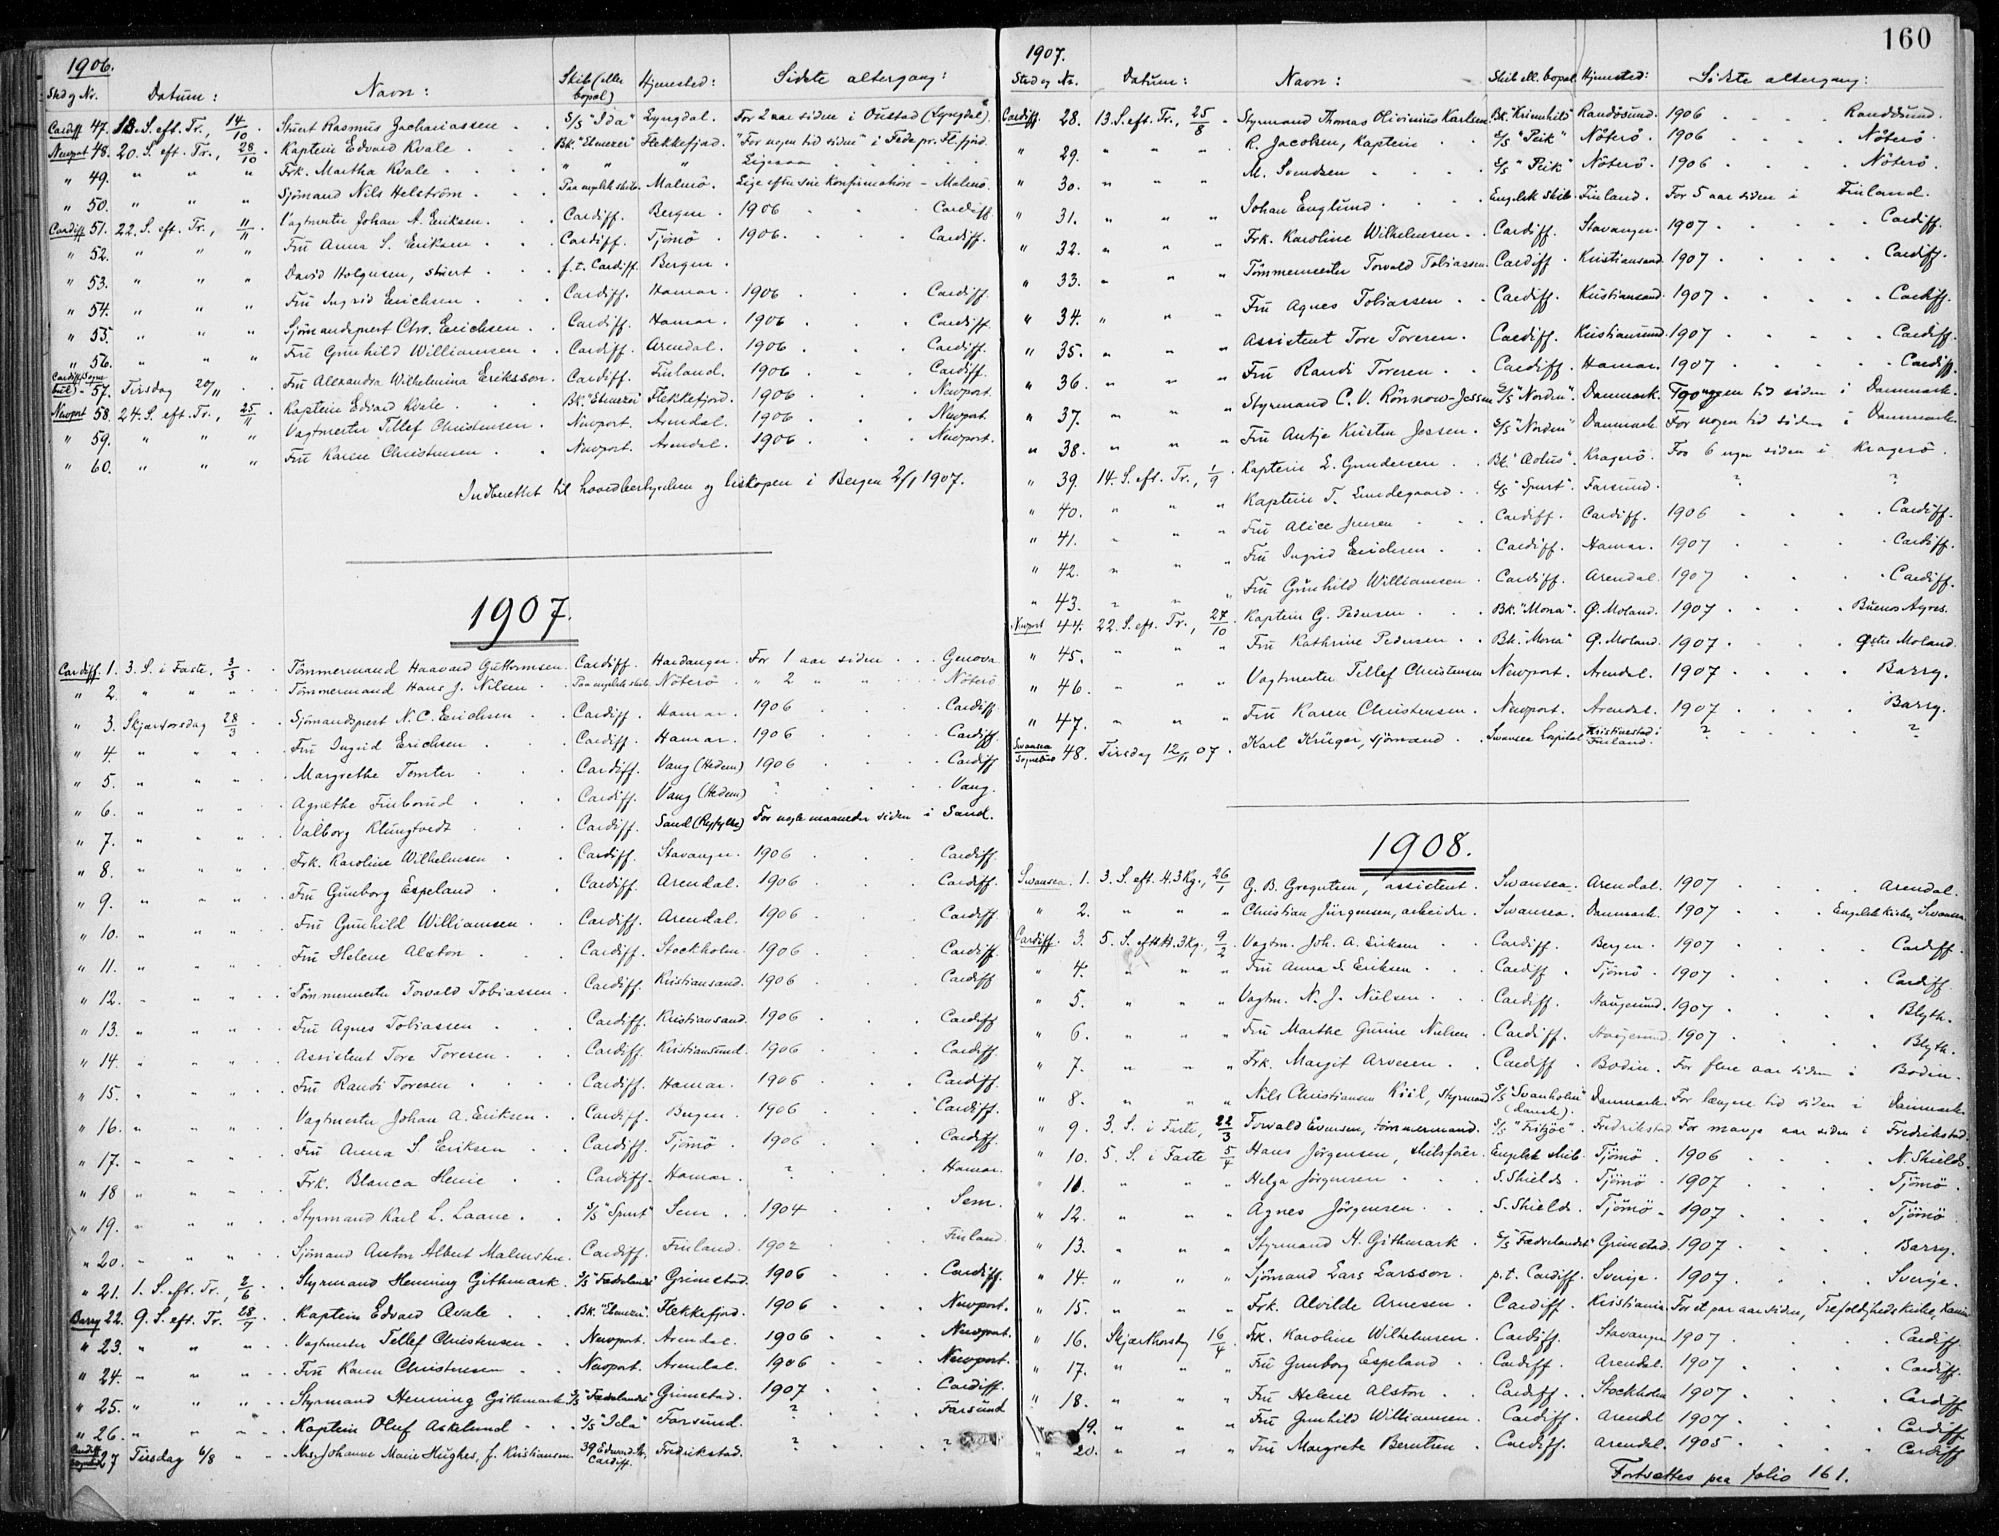 1906.
Sted og Nr. Datum: Navn: Skib (eller bopæl) Hjemsted: Sidste altergang:
Cardiff 47. 18. S. eft. Tr., 14/10 Stuert Rasmus Zachariassen S/S "Ida" Lyngdal. For 2 aar siden i (Lyngdal)
Newport 48. 20. S. eft. Tr., 28/10 Kaptein Edvard Kvale Bk. "Ebenezer" Flekkefjord. "For nogen tid siden" i Fede pr. Fl.fjord.
" 49. " " " Frk. Martha Kvale " " " Ligesaa
" 50. " " " Sjömand Nils Helström Paa engelsk skib. Malmö. Lige efter sin Konfirmation - Malmö.
Cardiff 51. 22. S. eft. Tr., 11/11 Vagtmester Johan A. Eriksen. Cardiff. Bergen. 1906 Cardiff.
" 52. " " " Fru Anna S. Eriksen Cardiff. Tjömö. 1906. Cardiff.
" 53. " " " David Holgersen, stuert f.t. Cardiff. Bergen.
" 54. " " " Fru Ingrid Erichsen Cardiff. Hamar. 1906 Cardiff.
" 55. " " " Sjömandsprest Chr. Erichsen. Cardiff. Hamar. 1906 Cardiff.
" 56. " " " Fru Gunhild Williamsen Cardiff. Arendal. 1906 Cardiff.
57. Tirsdag 20/11 Fru Alexandra Wilhelmina Eriksson. Cardiff. Finland. 1906 Cardiff.
Newport 58. 24. S. eft. Tr., 25/11 Kaptein Edvard Kvale Bk. "Ebenezer" Flekkefjord. 1906 Newport.
" 59. " " " Vagtmester Tellef Christensen. Newport. Arendal. 1906 Newport.
" 60. " " " Fru Karen Christensen Newport. Arendal. 1906 Newport.
Indberettet til hovedbestyrelsen og biskopen i Bergen 2/1 1907.
1907.
Cardiff. 1. 3. S. i Faste, 3/3 Tömmermand Haavard Guttormsen. Cardiff. Hardanger. For 1 aar siden Genova.
" 2. " " " Tömmermand Hans J. Nilsen. Paa engelsk skib. Nöterö " 2 " " Nöterö
" 3. Skjærtorsdag 28/3 Sjömandsprest N. C. Erichsen Cardiff. Hamar. 1906 Cardiff
" 4. " " Fru Ingrid Erichsen Cardiff. Hamar. 1906 Cardiff.
" 5. " " Margrethe Tomter Cardiff. Vang (Hedem) 1906 Cardiff
" 6. " " Agnethe Finborud Cardiff. Vang (Hedem) Vang.
" 7. " " Valborg Klungtvedt Cardiff. Sand (Ryfylke) For nogle maaneder siden i Sand.
" 8. " " Frk. Karoline Wilhelmsen Cardiff. Stavanger. 1906 Cardiff.
" 9. " " Fru Gunborg Espeland Cardiff. Arendal. 1906 Cardiff.
" 10. " " Fru Gunhild Williamsen Cardiff. Arendal. 1906 Cardiff.
" 11. " " Fru Helene Alston. Cardiff. Stockholm. 1906 Cardiff.
" 12. " " Tömmermester Torvald Tobiassen. Cardiff. Kristiansand. 1906 Cardiff
" 13. " " Fru Agnes Tobiassen Cardiff. Kristiansand. 1906 Cardiff
" 14. " " Assistent Tore Toresen. Cardiff. Kristiansund. 1906 Cardiff.
" 15. " " Fru Randi Toresen Cardiff. Hamar. 1906 Cardiff.
" 16. " " Vagtmester Johan A. Eriksen. Cardiff. Bergen. 1906 Cardiff.
" 17. " " Fru Anna S. Eriksen Cardiff. Tjömö. 1906 Cardiff.
" 18 " " Frk. Blanca Henie Cardiff. Hamar. ? Hamar.
" 19. " " Styrmand Karl L. Laane. S/S "Spurt" Sem 1904 Sem.
" 20. " " Sjömand Anton Albert Malmsten. Cardiff. Finland. 1902 Finland
" 21. 1. S. eft. Tr., 2/6 Styrmand Henning Githmark. S/S "Fædrelandet" Grimstad. 1906 Cardiff.
Barry 22. 9. S. eft. Tr. 28/7 Kaptein Edvard Qvale Bk. "Ebenezer". Flekkefjord. 1906 Newport.
" 23. " " Vagtmester Tellef Christensen Newport. Arendal. 1906 Newport.
" 24. " " Fru Karen Christensen Newport. Arendal. 1906 Newport.
" 25. " " Styrmand Henning Githmark S/S "Fædrelandet" Grimstad. 1907 Cardiff.
" 26. " " Kaptein Oluf Askelund S/S "Ida" Farsund. ? Farsund
27 Tirsdag 6/8 Mrs. Johanne Marie Hughes, f. Kristiansen. 39 Edward Str. Cardiff. Fredrikstad. ? ?
160
1907.
Sted og Nr. Datum: Navn: Skib ell. bopæl Hjemsted: Sidste altergang:
Cardiff 28. 13. S. eft. Tr., 25/8 Styrmand Thomas Olivinius Karlsen Bk. "Kriemhild" Randösund. 1906 Randösund.
" 29. " " " R. Jacobsen, Kaptein S/S "Peik" Nöterö. 1906 Nöterö.
" 30. " " " M. Svendsen S/S "Peik" Nöterö. 1906 Nöterö.
" 31. " " " Johan Englund Engelsk skib. Finland. For 5 aar siden i Finland.
" 32. " " " Frk. Karoline Wilhelmsen. Cardiff. Stavanger. 1907 Cardiff.
" 33. " " " Tömmermester Torvald Tobiassen. Cardiff. Kristiansand. 1907 Cardiff.
" 34. " " " Fru Agnes Tobiassen Cardiff. Kristiansand. 1907 Cardiff.
" 35. " " " Assistent Tore Toresen. Cardiff. Kristiansund. 1907 Cardiff.
" 36. " " " Fru Randi Toresen Cardiff. Hamar. 1907 Cardiff.
" 37. " " " Styrmand C. V. Rönnow-Jessen S/S "Norden". Danmark. For nogen tid siden i Danmark.
" 38. " " " Fru Antje Kirstin Jessen. S/S "Norden" Danmark. For nogen tid siden i Danmark.
" 39. 14. S. eft. Tr., 1/9 Kaptein L. Gundersen Bk. "Æolus". Kragerö. For 6 uger siden i Kragerö.
" 40. " " " Kaptein T. Lundegaard S/S "Spurt". Farsund. ? ?
" 41. " " " Fru Alice Jensen Cardiff. Cardiff. 1906 Cardiff.
" 42. " " " Fru Ingrid Erichsen Cardiff. Hamar. 1907 Cardiff.
" 43. " " " Fru Gunhild Williamsen Cardiff. Arendal. 1907 Cardiff.
Newport 44. 22. S. eft. Tr., 27/10 Kaptein G. Pedersen Bk. "Mona". Ø. Moland. 1907 Buenos Ayres.
" 45. " " " Fru Kathrine Pedersen Bk. "Mona" Ø. Moland. 1907 Østre Moland.
" 46. " " " Vagtmester Tellef Christensen Newport. Arendal. 1907 Barry.
" 47. " " " Fru Karen Christensen. Newport. Arendal. 1907 Barry.
Swansea Sognebud 48. Tirsdag 12/11 07. Karl Krüger, sjömand Swansea Hospital Kristinestad i Finland. ? ?
1908.
Swansea. 1. 3. S. eft. H. 3 Kg., 26/1 G. B. Gregersen, assistent. Swansea. Arendal. 1907 Arendal.
" 2. " " " Christian Jürgensen, arbeider. Swansea. Danmark. 1907 Engelsk kirke, Swansea.
Cardiff. 3. 5. S. eft. H. 3 Kg., 9/2 Vagtm. Joh. A. Eriksen Cardiff. Bergen. 1907 Cardiff.
" 4. " " " Fru Anna S. Eriksen Cardiff. Tjömö. 1907 Cardiff.
" 5. " " " Vagtm. N. J. Nielsen Cardiff. Haugesund. 1907 Blyth.
" 6. " " Fru Marthe Gurine Nielsen Cardiff. Haugesund. 1907 Blyth.
" 7. " " " Frk. Margit Arvesen Cardiff. Bodin. For flere aar siden i Bodin.
" 8. " " " Nils Christiansen Kiil, styrmand S/S "Svanholm" (dansk). Danmark. For længere tid siden i Danmark.
" 9. 3. S. i Faste, 22/3 Torvald Evensen, tömmermand. S/S "Fritzöe". Fredrikstad. For mange aar siden i Fredrikstad.
" 10. 5. S. i Faste 5/4 Hans Jörgensen, skibsförer. Engelsk skib. Tjömö. 1906 N. Shields.
" 11. " " Helga Jörgensen S. Shields. Tjömö. 1907 Tjömö.
" 12. " " " Agnes Jörgensen S. Shields. Tjömö. 1907 Tjömö
" 13. " " " Styrmand H. Githmark S/S "Fædrelandet" Grimstad. 1907 Barry.
" 14. " " " Sjömand Lars Larsson. p.t. Cardiff. Sverige. 1907 Sverige.
" 15. " " " Frk. Alvilde Arnesen. Cardiff. Kristiania. For et par aar siden, Trefoldigheds kirke,
" 16. Skjærthorsdag 16/4 Frk. Karoline Wilhelmsen. Cardiff. Stavanger 1907 Cardiff.
" 17. " " Fru Gunborg Espeland Cardiff. Arendal. 1907 Cardiff.
" 18. " " Fru Helene Alston Cardiff. Stockholm 1907 Cardiff.
19. " " Fru Gunhild Williamsen. Cardiff. Arendal 1907 Cardiff.
" 20. " " Fru Margrete Berntsen Cardiff. Arendal. 1905 Cardiff
Fortsættes paa folio 161.